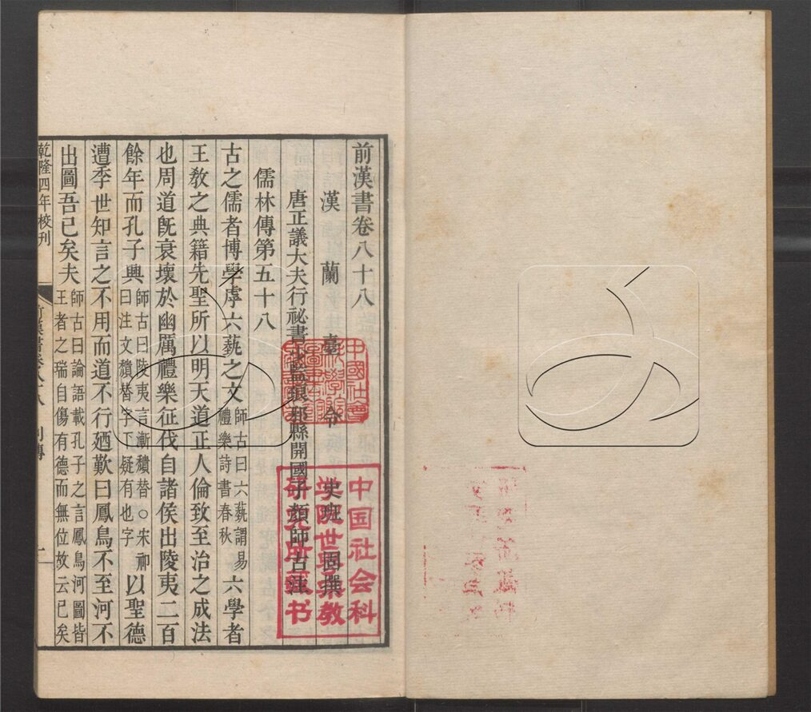 前漢書卷八十八
漢蘭臺令史班固撰
唐正議大夫行祕書少監琅邪縣開國子顏師古注
儒林傳第五十八
古之儒者博學虖六藝之文師古曰六藝謂易禮樂詩書春秋六學者
王教之典籍先聖所以明天道正人倫致至治之成法
也周道既衰壞於幽厲禮樂征伐自諸侯出陵夷二百
餘年而孔子興師古曰陵夷言漸頹替○宋祁曰注文頹替字下疑有也字以聖德
遭季世知言之不用而道不行廼歎曰鳳鳥不至河不
出圖吾已矣夫師古曰論語載孔子之言鳳鳥河圖皆王者之瑞自傷有德而無位故云已矣
乾隆四年校刊
前漢書卷八十八 列傳 一
中國社會
科學院
中国社会科
学院世界宗教
研究所藏书